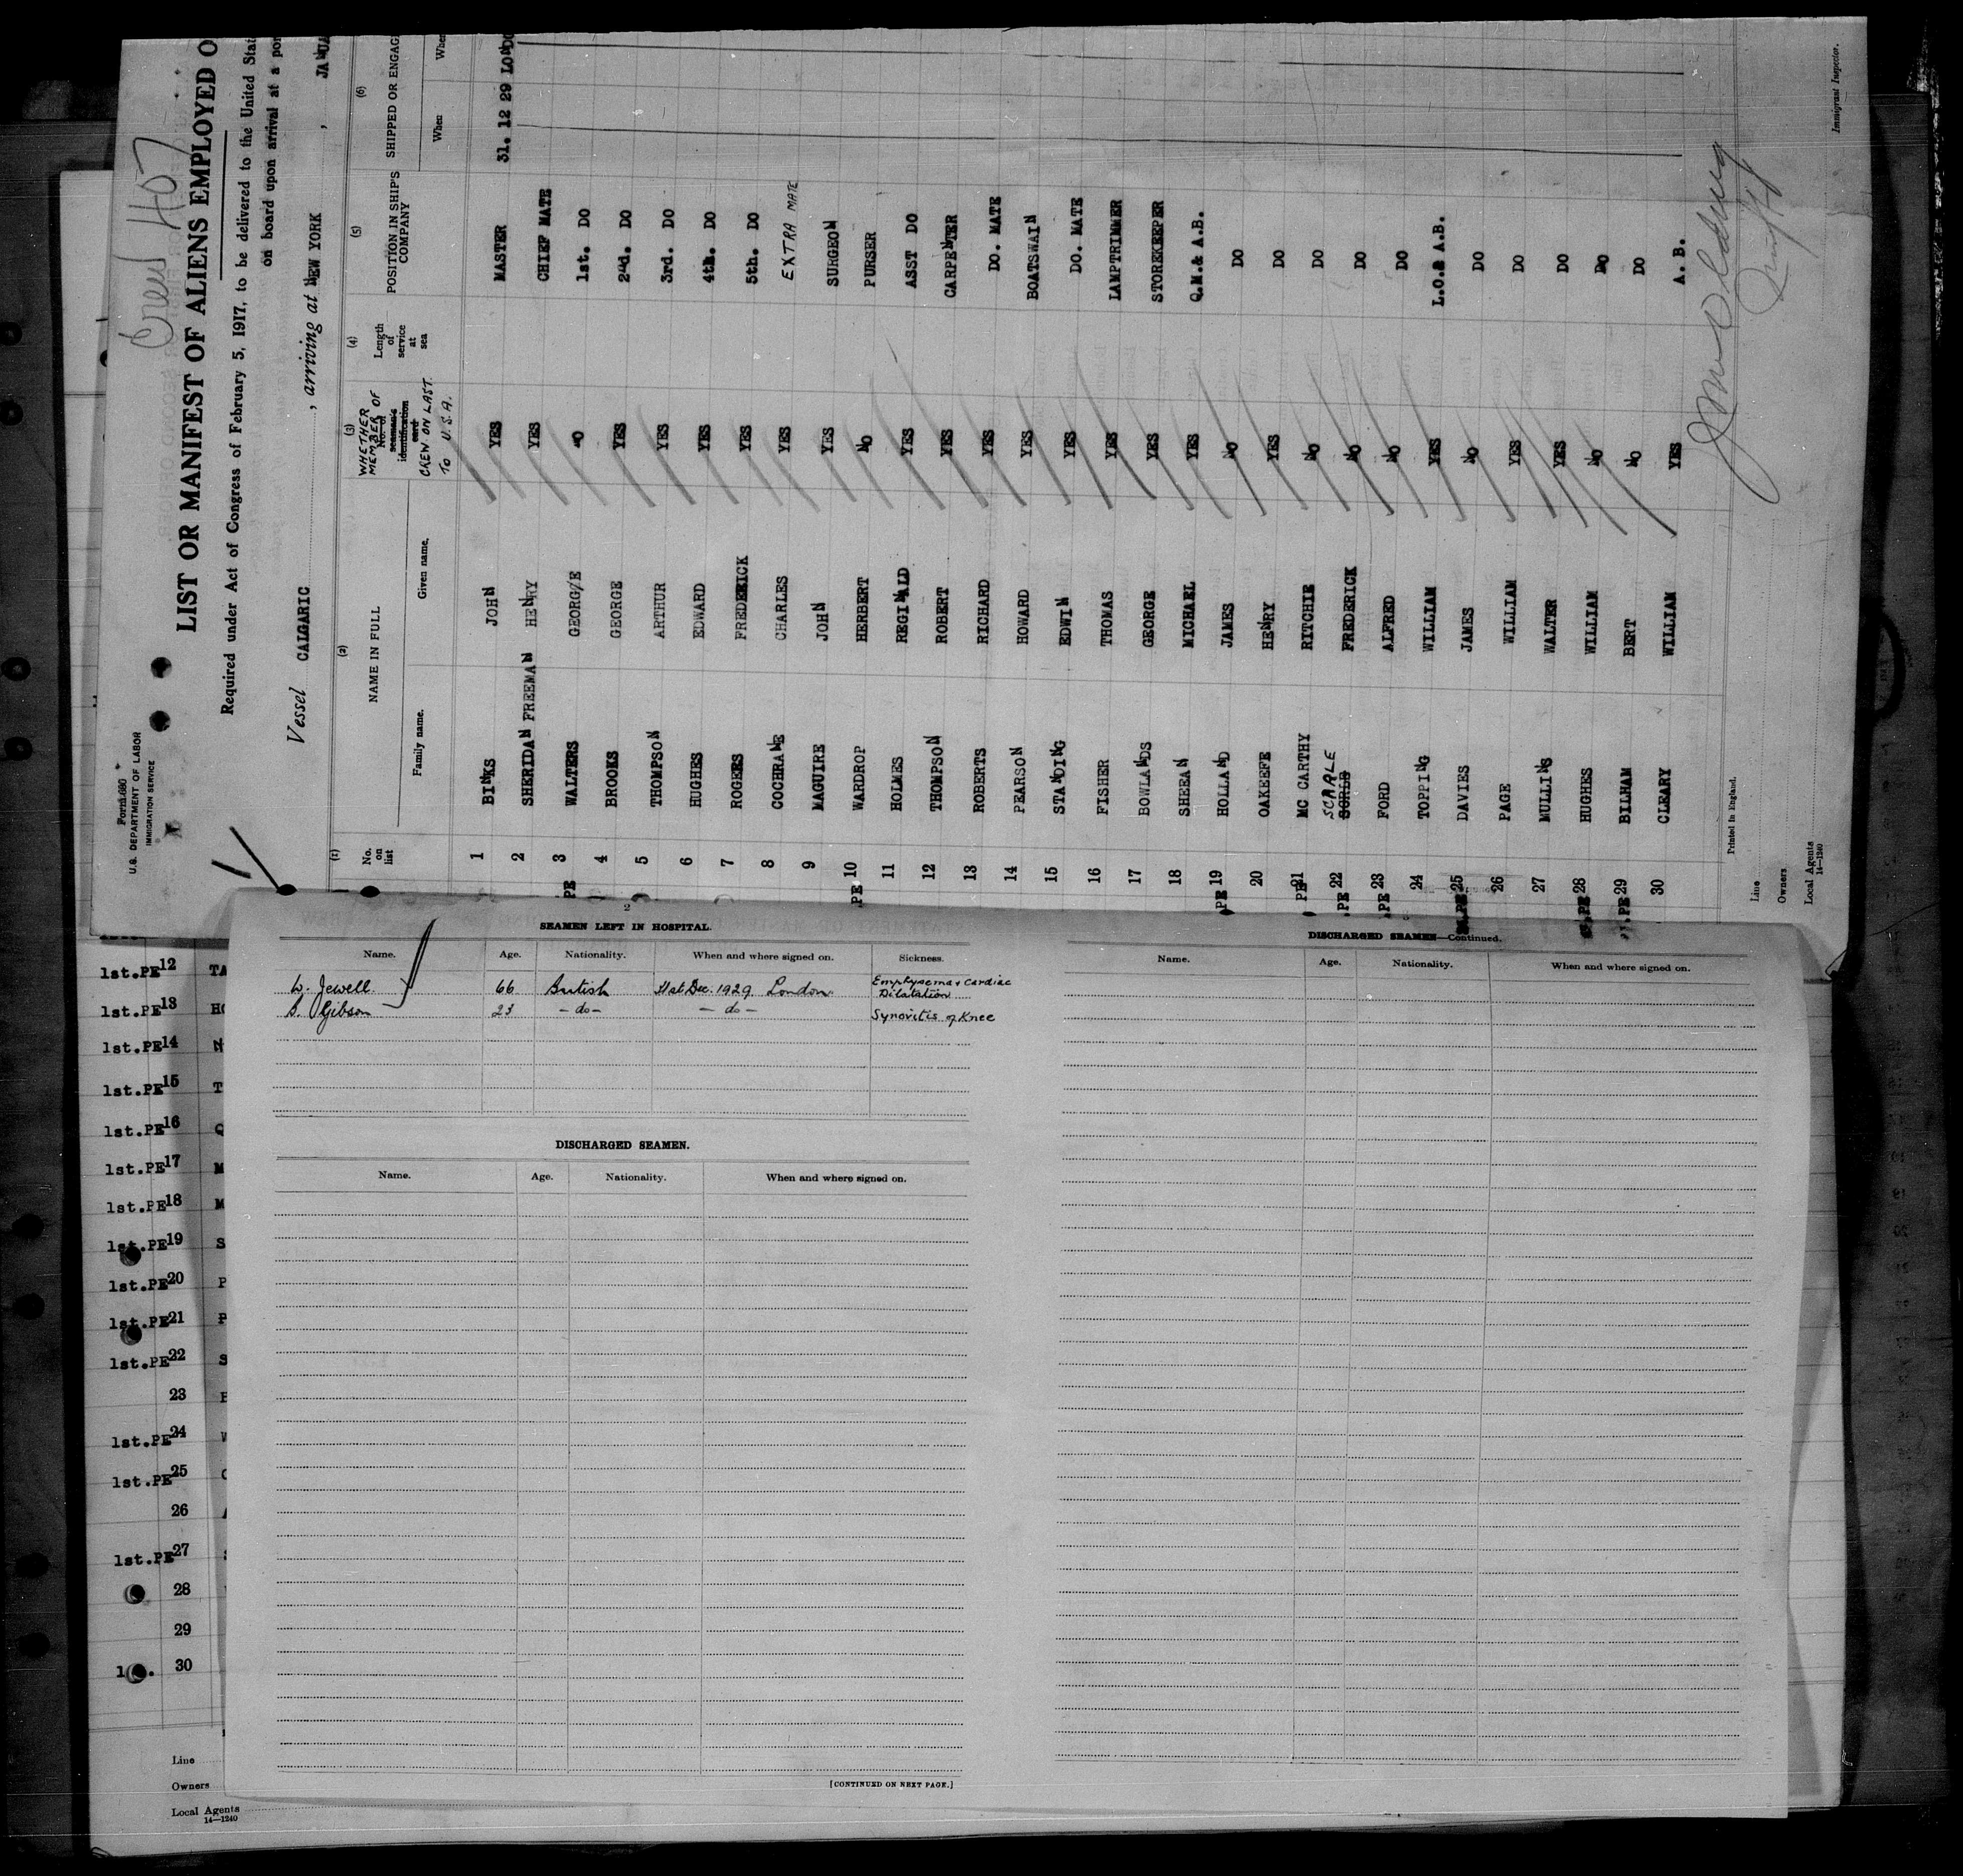 Form 680
U.S. DEPARTMENT OF LABOR
IMMIGRATION SERVICE
Crew 407
LIST OR MANIFEST OF ALIENS EMPLOYED O
Required under Act of Congress of February 5, 1917, to be delivered to the United Stat
on board upon arrival at a por
Vessel CALGARIC, arriving at NEW YORK, JANUA
(1) (2) (3) (4) (5) (6)
No. on list
NAME IN FULL
Family name. Given name.
WHETHER MEMBER OF CREW ON LAST TO U.S.A.
No. of seaman's identification card
Length of service at sea
POSITION IN SHIP'S COMPANY
SHIPPED OR ENGAG
When Wher
1 BINKS JOHN YES MASTER 31. 12 29 LONDO
2 SHERIDAN FREEMAN HENRY YES CHIEF MATE
PE 3 WALTERS GEORG/E NO 1st. DO
4 BROOKS GEORGE YES 2nd. DO
5 THOMPSON ARTHUR YES 3rd. DO
6 HUGHES EDWARD YES 4th. DO
7 ROGERS FREDERICK YES 5th. DO
8 COCHRANE CHARLES YES EXTRA MATE
9 MAGUIRE JOHN YES SURGEON
PE 10 WARDROP HERBERT NO PURSER
11 HOLMES REGINALD YES ASST DO
12 THOMPSON ROBERT YES CARPENTER
13 ROBERTS RICHARD YES DO. MATE
14 PEARSON HOWARD YES BOATSWAIN
15 STANDING EDWIN YES DO. MATE
16 FISHER THOMAS YES LAMPTRIMMER
17 BOWLANDS GEORGE YES STOREKEEPER
18 SHEEAN MICHAEL YES Q.M.& A.B.
PE 19 HOLLAND JAMES NO DO
20 OAKEEFE HENRY YES DO
PE 21 MC CARTHY RITCHIE NO DO
.PE 22 SCARLE FREDERICK NO DO
PE 23 FORD ALFRED NO DO
24 TOPPING WILLIAM YES L.O.& A.B.
PE 25 DAVIES JAMES NO DO
26 PAGE WILLIAM YES DO
27 MULLINS WALTER YES DO
PE 28 HUGHES WILLIAM NO DO
.PE 29 BILHAM BERT NO DO
30 CLEARY WILLIAM YES A. B.
Printed in England.
Line
Owners
Local Agents
14-1240
Immigrant Inspector.
2
SEAMEN LEFT IN HOSPITAL.
Name. Age. Nationality. When and where signed on. Sickness.
W. Jewell 66 British 31st Dec. 1929. London Emphysema & Cardiac Dilatation
S. Gibson 23 - do - - do - Synovitis of Knee
DISCHARGED SEAMEN.
Name. Age. Nationality. When and where signed on.
[CONTINUED ON NEXT PAGE.]
DISCHARGED SEAMEN—Continued.
Name. Age. Nationality. When and where signed on.
1st.PE 12 TA
1st.PE 13 HO
1st.PE 14 N
1st.PE 15 T
1st.PE 16 Q
1st.PE 17 M
1st.PE 18 M
1st.PE 19 S
1st.PE 20 P
1st.PE 21 P
1st.PE 22 S
23
1st.PE 24
1st.PE 25
26
1st.PE 27
28
29
30
Line
Owners
Local Agents
14—1240